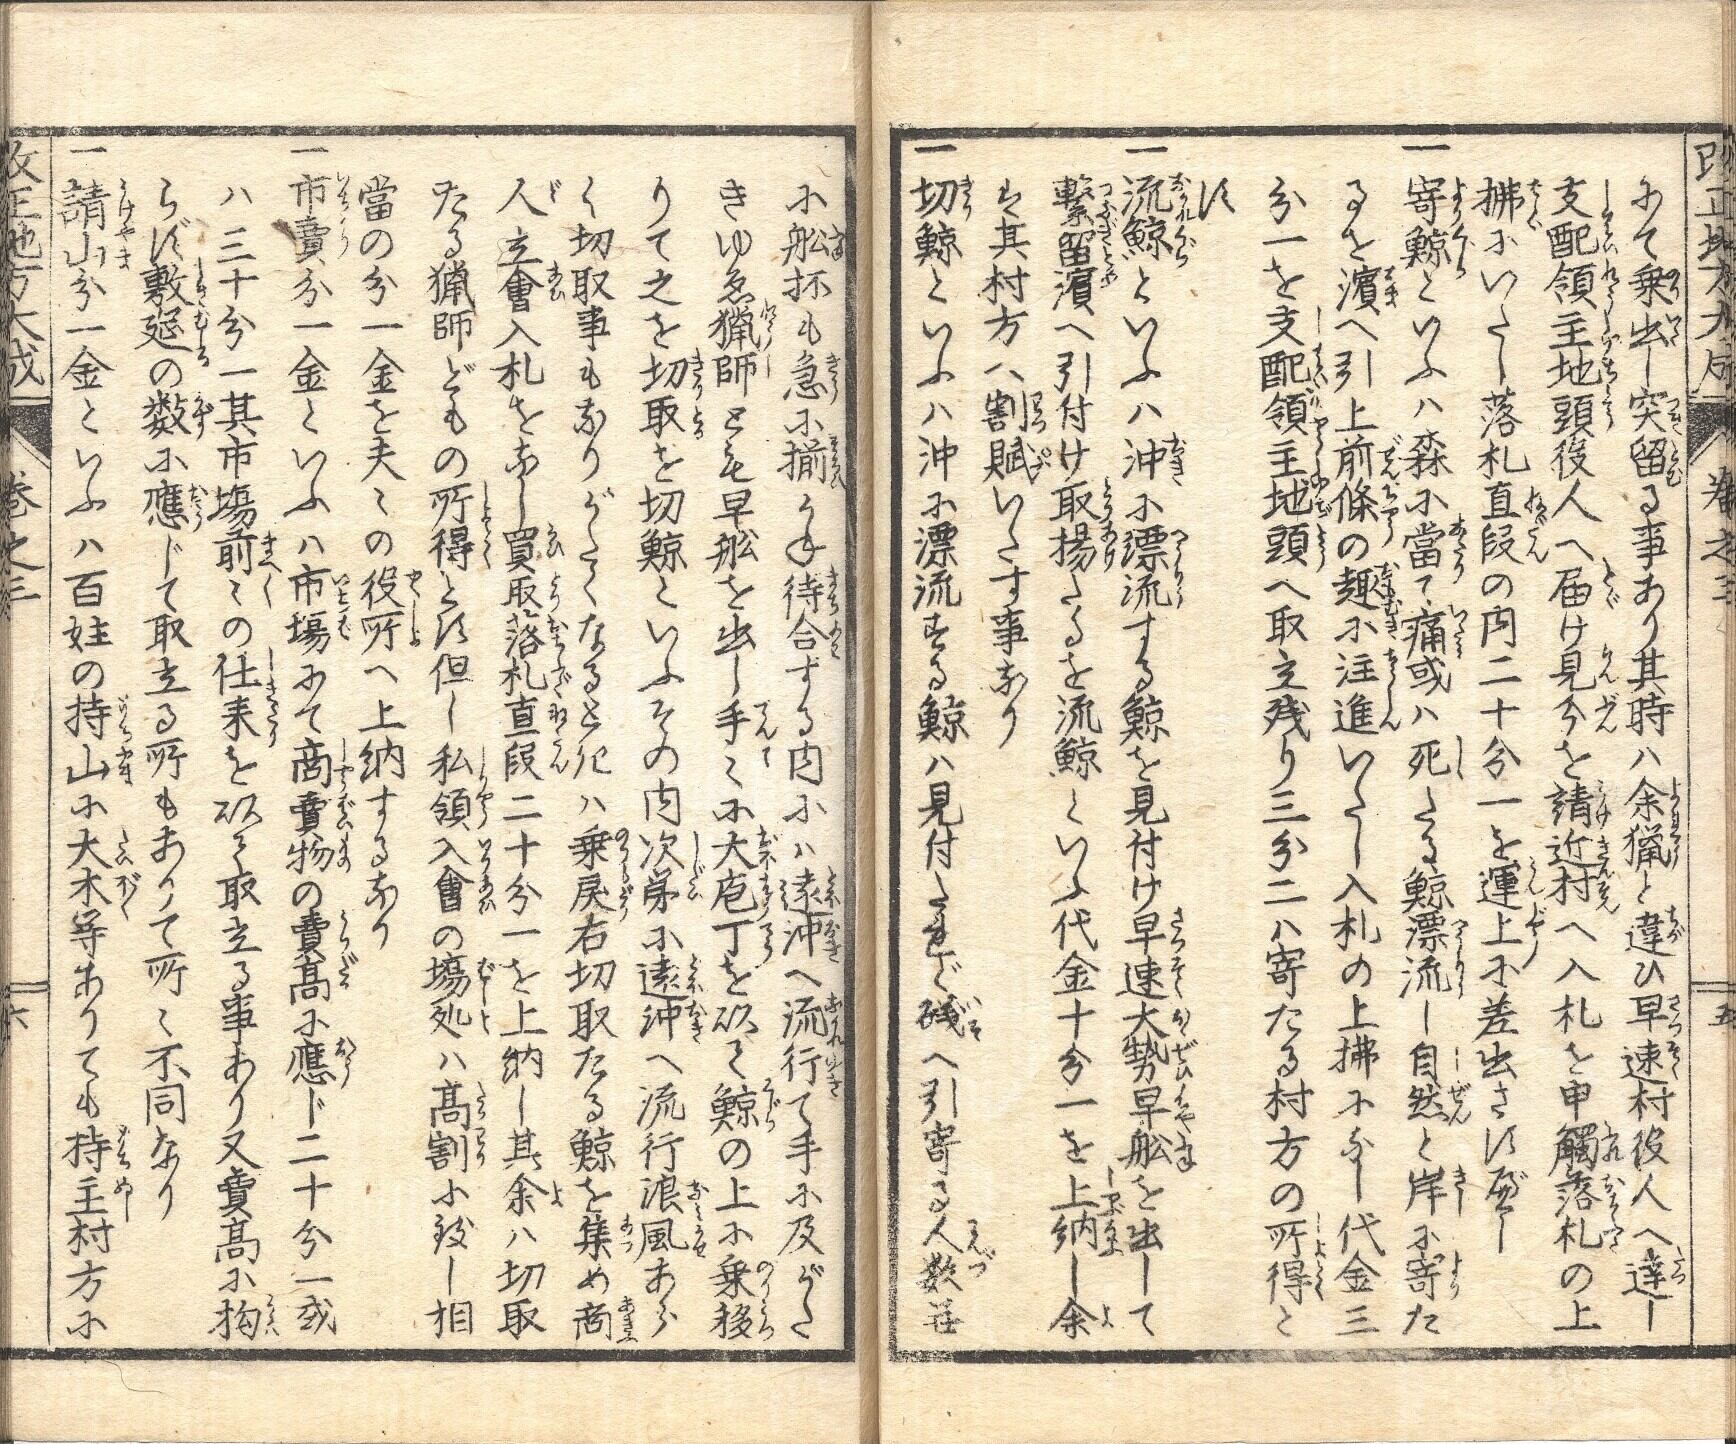 改正地方大成 巻之三 五
みて乗出し突留る事あり其時ハ余猟と違ひ早速村役人へ達し
支配領主地頭役人へ届け見分を請近村へ入札を申觸落札の上
拂ふいたし落札直段の内二十分一を運上に差出さす
一寄鯨といふハ森に當て痛或ハ死たる鯨漂流し自然と岸に寄た
るを濱へ引上前條の趣に注進いたし入札の上拂になし代金三
分一を支配領主地頭へ取立残り三分二ハ寄たる村方の所得と
す
一流鯨といふハ沖に漂流する鯨を見付け早速大勢早舩を出して
繋留濱へ引付け取揚たるを流鯨といふ代金十分一を上納し余
は其村方ハ割賦いたす事あり
一切鯨といふハ沖に漂流する鯨ハ見付たれど礒へ引寄る人数並
に舩抔も急に揃かね待合する内にハ遠沖へ流行て手に及がた
きゆゑ猟師ども早舩を出し手々に大庖丁を以て鯨の上に乗移
りて之を切取を切鯨といふその内次第に遠沖へ流行浪風あら
く切取事もなりがたくなるときハ乗戻右切取たる鯨を集め商
人立會入札をなし買取落札直段二十分一を上納し其余ハ切取
たる猟師どもの所得とす但し私領入會の塲処ハ高割に致し相
當の分一金を夫々の役所へ上納するなり
一市賣分一金といふハ市塲みて商賣物の賣高に應じ二十分一或
ハ三十分一其市塲前々の仕来を以て取立る事あり又賣高に拘
らず敷莚の數に應じて取立る所もありて所々不同なり
一請山分一金といふハ百姓の持山に大木等ありても持主村方に
改正地方大成 巻之三 六